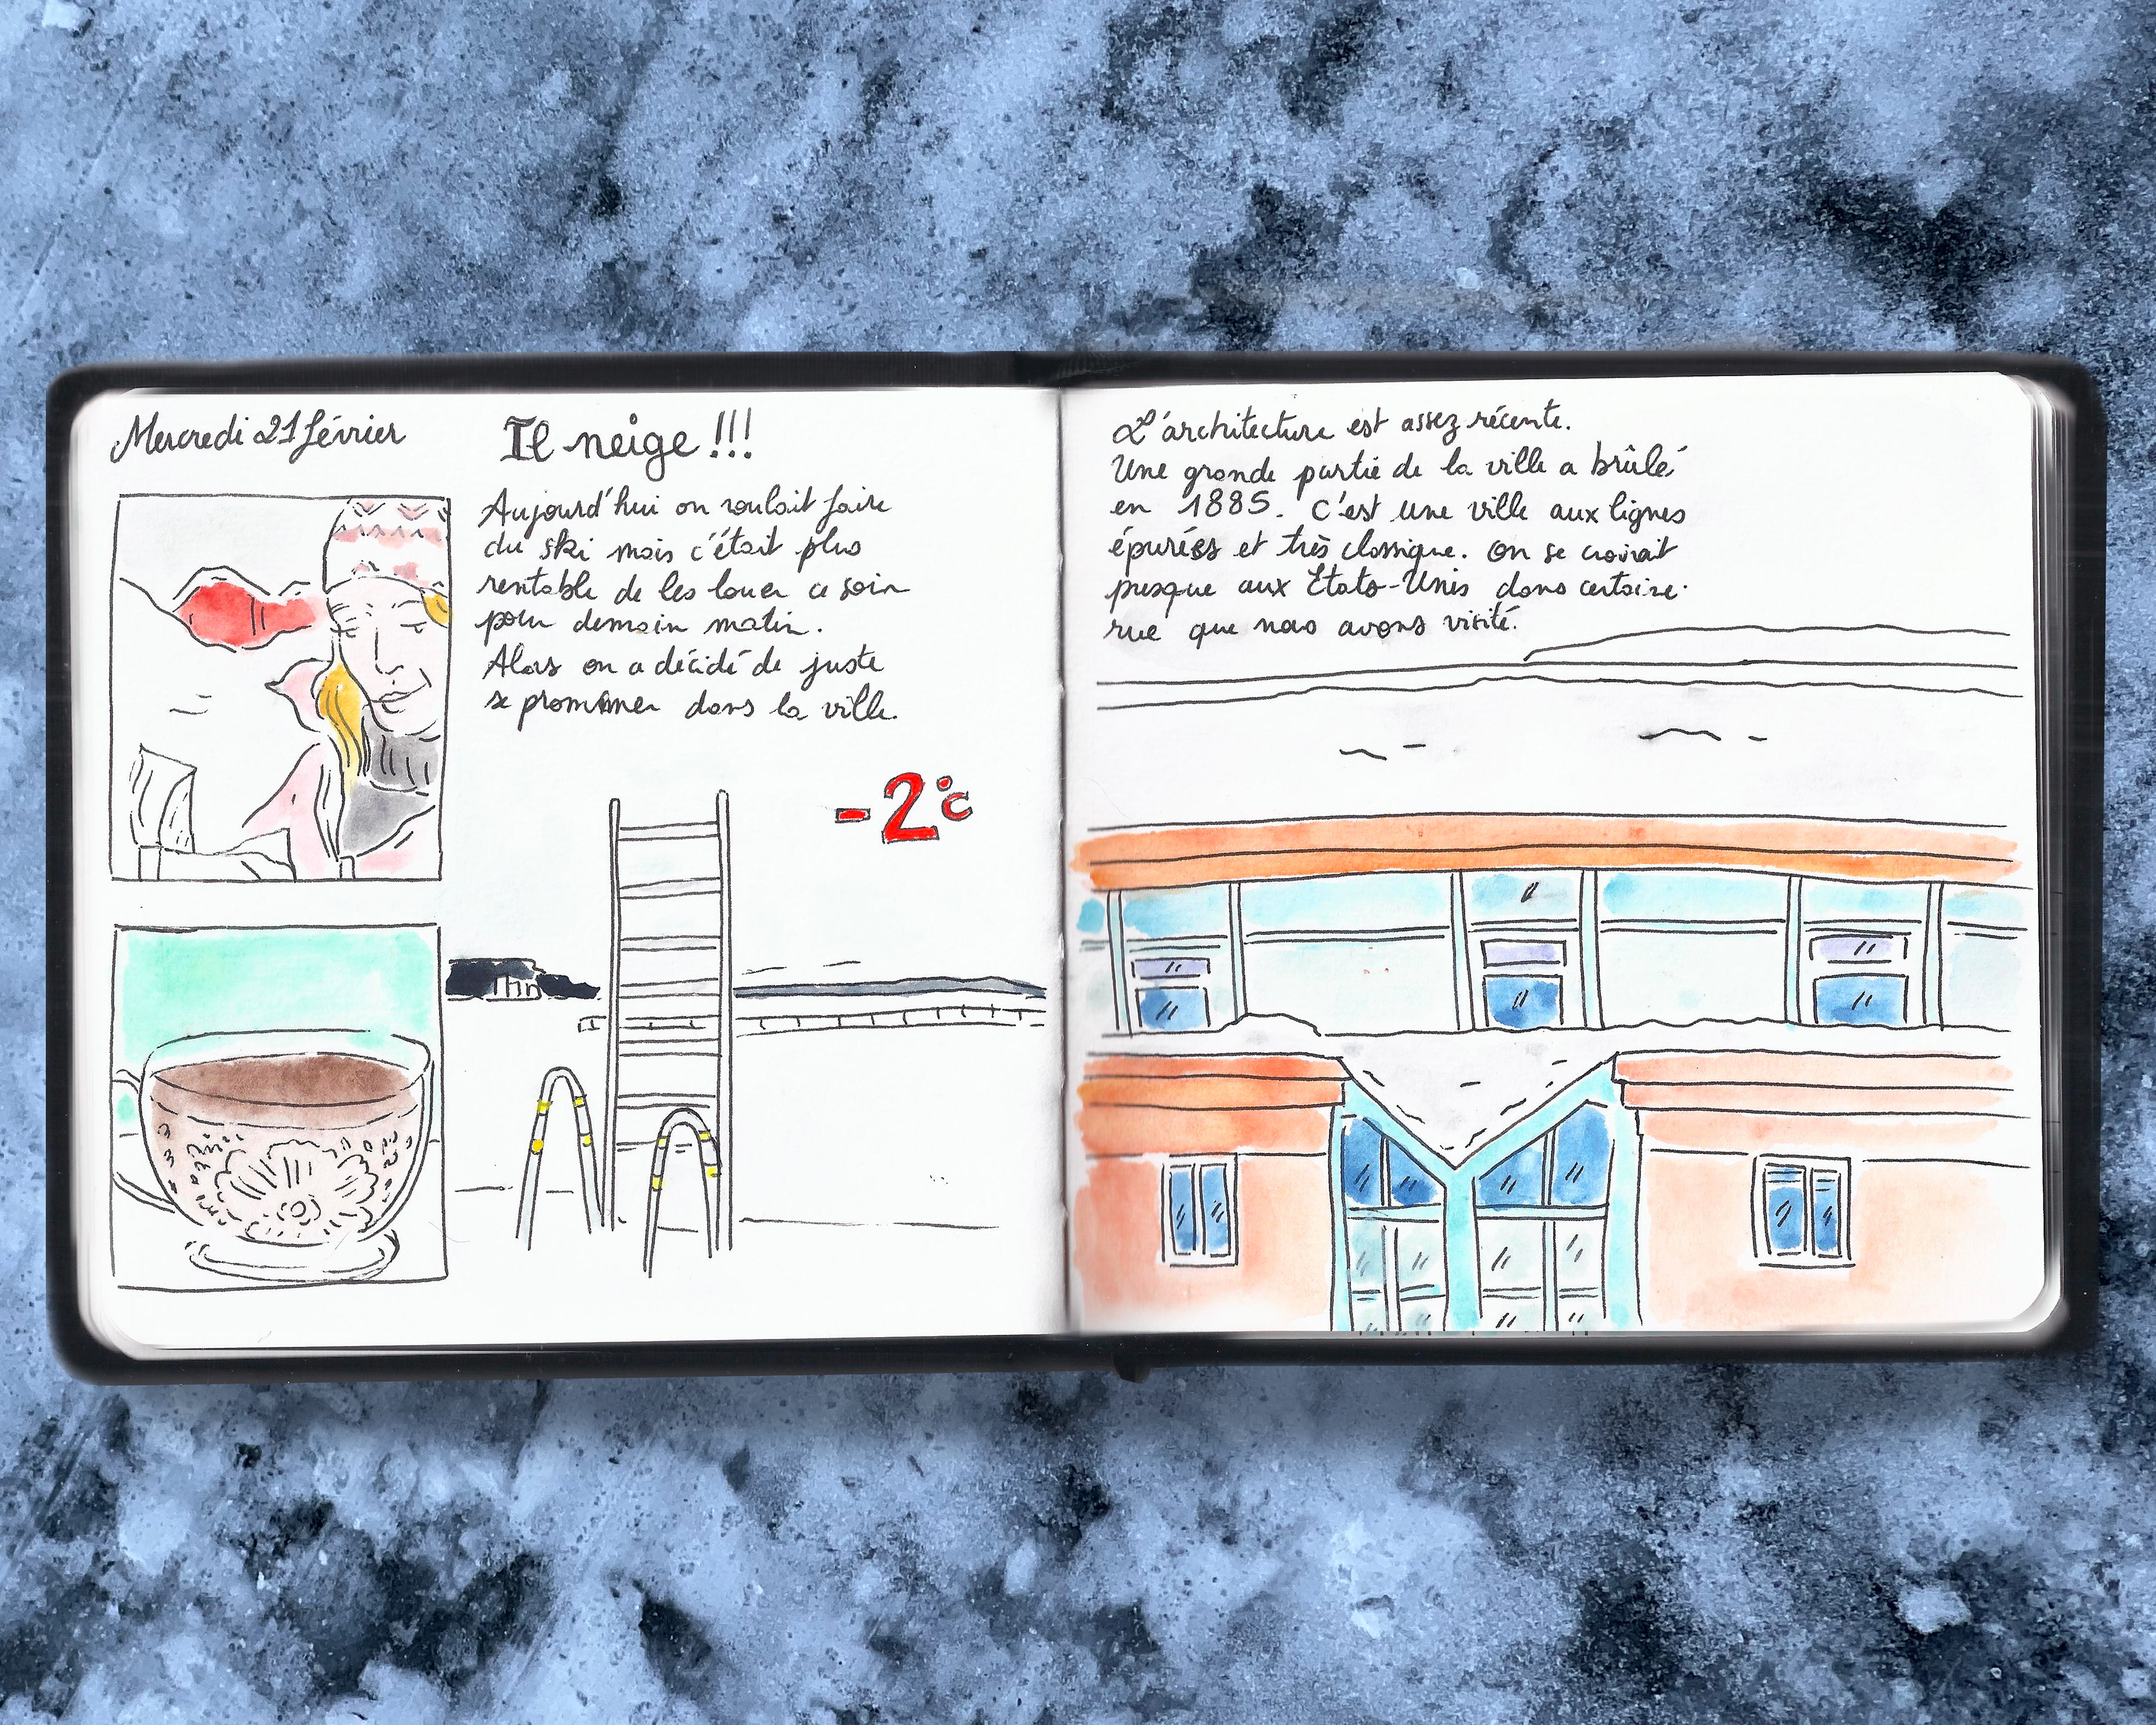 Mercredi 21 février
Il neige !!!
Aujourd'hui on voulait faire
du ski mais c'était plus
rentable de les louer ce soir
pour demain matin.
Alors on a décidé de juste
se promener dans la ville.
-2°C
L'architecture est assez récente.
Une grande partie de la ville a brûlé
en 1885. C'est une ville aux lignes
épurées et très classique. On se croirait
presque aux États-Unis dans certaine
rue que nous avons visité.